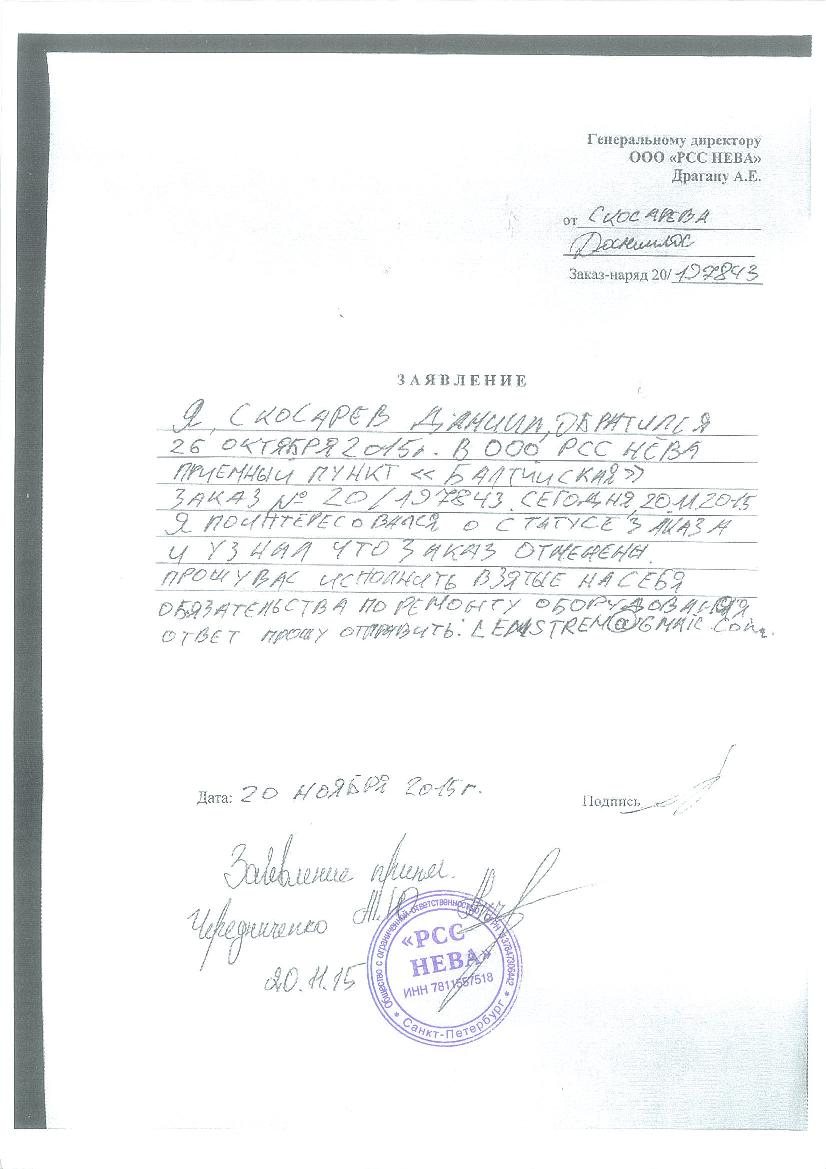 Генеральному директору
ООО «РСС НЕВА»
Драгану А.Е.
от СКОСАРЕВА
Даниила
Заказ-наряд 20/ 197843
ЗАЯВЛЕНИЕ
Я, СКОСАРЕВ ДАНИИЛ, ОБРАТИЛСЯ
26 ОКТЯБРЯ 2015г. В ООО РСС НЕВА
ПРИЕМНЫЙ ПУНКТ «БАЛТИЙСКАЯ»
ЗАКАЗ № 20/197843. СЕГОДНЯ, 20.11.2015
Я ПОИНТЕРЕСОВАЛСЯ О СТАТУСЕ ЗАКАЗА
И УЗНАЛ ЧТО ЗАКАЗ ОТМЕНЕНЫ.
ПРОШУ ВАС ИСПОЛНИТЬ ВЗЯТЫЕ НА СЕБЯ
ОБЯЗАТЕЛЬСТВА ПО РЕМОНТУ ОБОРУДОВАНИЯ
ОТВЕТ ПРОШУ ОТПРАВИТЬ: LEMSTREM@GMAIL.COM.
Дата: 20 НОЯБРЯ 2015г.
Подпись
Заявление принял.
Чередниченко М.Ю.
20.11.15
Общество с ограниченной ответственностью
«РСС
НЕВА»
ИНН 7811557518
* Санкт-Петербург *